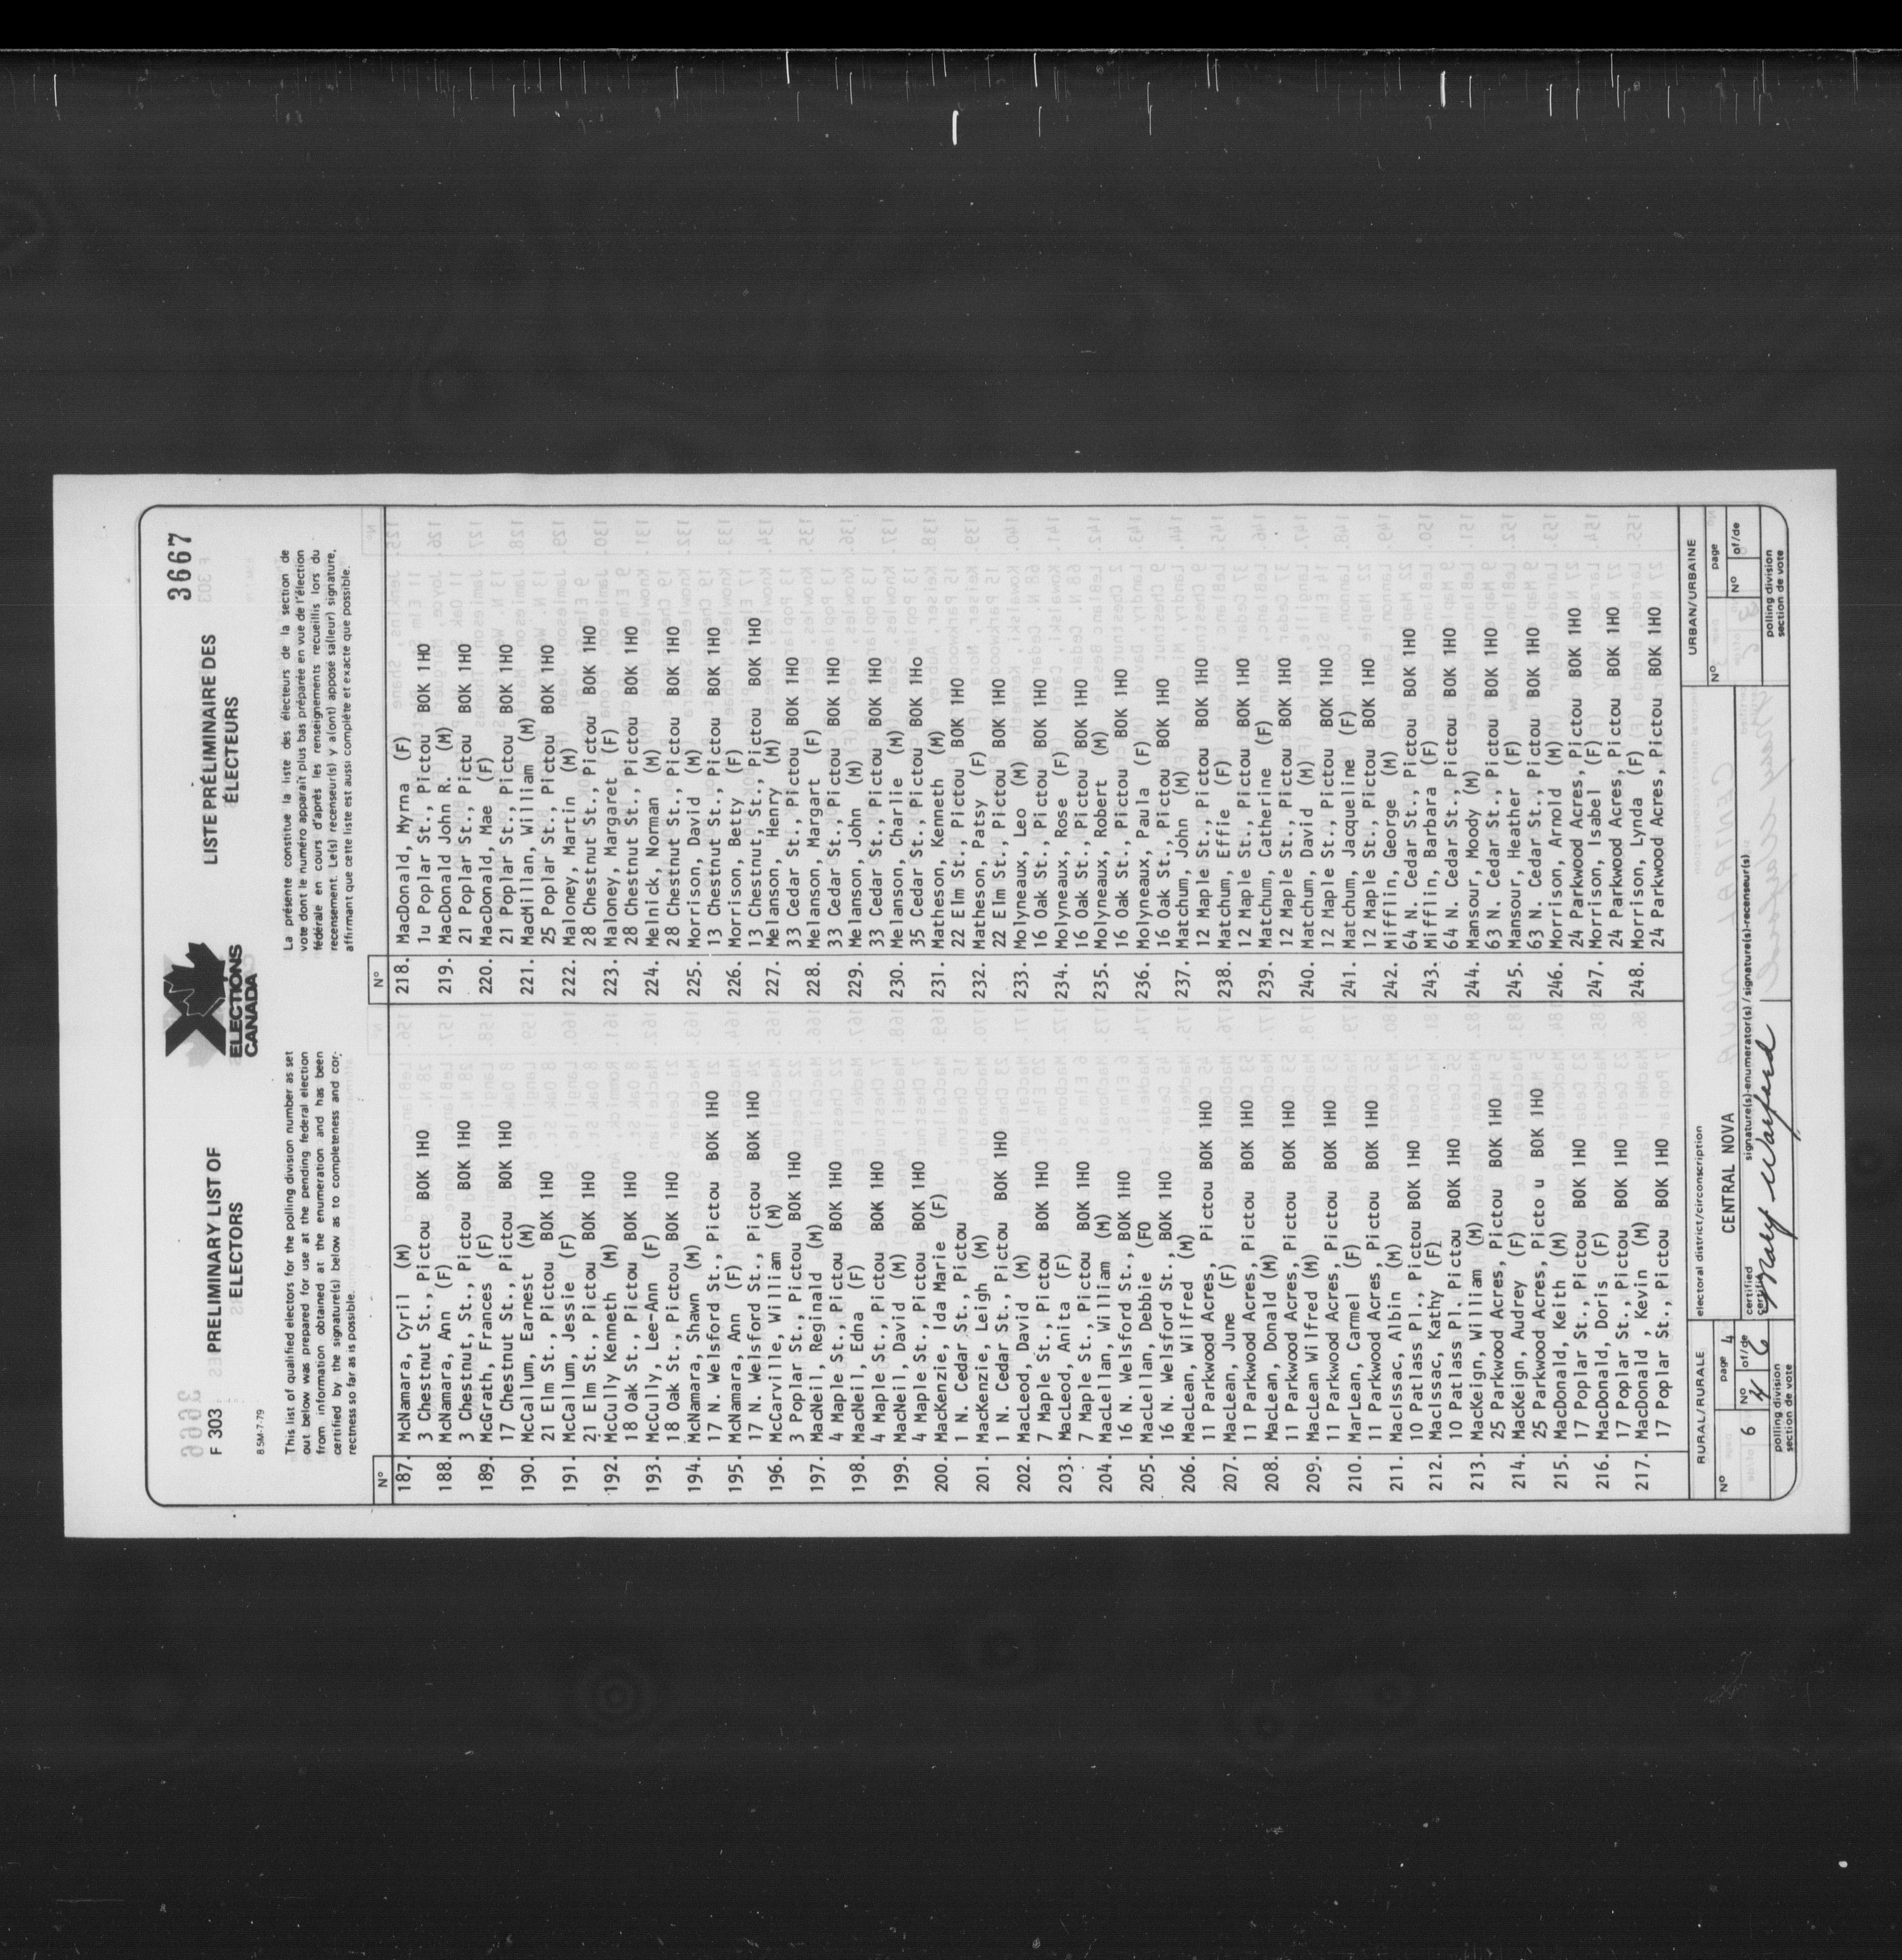 3667
F 303
PRELIMINARY LIST OF
ELECTORS
ELECTIONS
CANADA
LISTE PRÉLIMINAIRE DES
ÉLECTEURS
8 5M-7-79
This list of qualified electors for the polling division number as set
out below was prepared for use at the pending federal election
from information obtained at the enumeration and has been
certified by the signature(s) below as to completeness and cor-
rectness so far as is possible.
La présente constitue la liste des électeurs de la section de
vote dont le numéro apparaît plus bas préparée en vue de l'élection
fédérale en cours d'après les renseignements recueillis lors du
recensement. Le(s) recenseur(s) y a(ont) apposé sa(leur) signature,
affirmant que cette liste est aussi complète et exacte que possible.
Nº
187. McNamara, Cyril (M)
3 Chestnut St., Pictou BOK 1HO
188. McNamara, Ann (F)
3 Chestnut, St., Pictou BOK 1HO
189. McGrath, Frances (F)
17 Chestnut St., Pictou BOK 1HO
190. McCallum, Earnest (M)
21 Elm St., Pictou BOK 1HO
191. McCallum, Jessie (F)
21 Elm St., Pictou BOK 1HO
192. McCully Kenneth (M)
18 Oak St., Pictou BOK 1HO
193. McCully, Lee-Ann (F)
18 Oak St., Pictou BOK 1HO
194. McNamara, Shawn (M)
17 N. Welsford St., Pictou BOK 1HO
195. McNamara, Ann (F)
17 N. Welsford St., Pictou BOK 1HO
196. McCarville, William (M)
3 Poplar St., Pictou BOK 1HO
197. MacNeil, Reginald (M)
4 Maple St., Pictou BOK 1HO
198. MacNeil, Edna (F)
4 Maple St., Pictou BOK 1HO
199. MacNeil, David (M)
4 Maple St., Pictou BOK 1HO
200. MacKenzie, Ida Marie (F)
1 N. Cedar St., Pictou
201. MacKenzie, Leigh (M)
1 N. Cedar St., Pictou BOK 1HO
202. MacLeod, David (M)
7 Maple St., Pictou BOK 1HO
203. MacLeod, Anita (F)
7 Maple St., Pictou BOK 1HO
204. MacLellan, William (M)
16 N. Welsford St., BOK 1HO
205. MacLellan, Debbie (FO
16 N. Welsford St., BOK 1HO
206. MacLean, Wilfred (M)
11 Parkwood Acres, Pictou BOK 1HO
207. MacLean, June (F)
11 Parkwood Acres, Pictou BOK 1HO
208. MacLean, Donald (M)
11 Parkwood Acres, Pictou BOK 1HO
209. MacLean Wilfred (M)
11 Parkwood Acres, Pictou BOK 1HO
210. MarLean, Carmel (F)
11 Parkwood Acres, Pictou BOK 1HO
211. MacIssac, Albin (M)
10 Patlass Pl., Pictou BOK 1HO
212. MacIssac, Kathy (F)
10 Patlass Pl. Pictou BOK 1HO
213. MacKeign, William (M)
25 Parkwood Acres, Pictou BOK 1HO
214. MacKeign, Audrey (F)
25 Parkwood Acres, Picto u BOK 1HO
215. MacDonald, Keith (M)
17 Poplar St., Pictou BOK 1HO
216. MacDonald, Doris (F)
17 Poplar St., Pictou BOK 1HO
217. MacDonald , Kevin (M)
17 Poplar St., Pictou BOK 1HO
Nº
218. MacDonald, Myrna (F)
1u Poplar St., Pictou BOK 1HO
219. MacDonald John R. (M)
21 Poplar St., Pictou BOK 1HO
220. MacDonald, Mae (F)
21 Poplar St., Pictou BOK 1HO
221. MacMillan, William (M)
25 Poplar St., Pictou BOK 1HO
222. Maloney, Martin (M)
28 Chestnut St., Pictou BOK 1HO
223. Maloney, Margaret (F)
28 Chestnut St., Pictou BOK 1HO
224. Melnick, Norman (M)
28 Chestnut St., Pictou BOK 1HO
225. Morrison, David (M)
13 Chestnut St., Pictou BOK 1HO
226. Morrison, Betty (F)
13 Chestnut, St., Pictou BOK 1HO
227. Melanson, Henry (M)
33 Cedar St., Pictou BOK 1HO
228. Melanson, Margart (F)
33 Cedar St., Pictou BOK 1HO
229. Melanson, John (M)
33 Cedar St., Pictou BOK 1HO
230. Melanson, Charlie (M)
35 Cedar St., Pictou BOK 1Ho
231. Matheson, Kenneth (M)
22 Elm St., Pictou BOK 1HO
232. Matheson, Patsy (F)
22 Elm St., Pictou BOK 1HO
233. Molyneaux, Leo (M)
16 Oak St., Pictou BOK 1HO
234. Molyneaux, Rose (F)
16 Oak St., Pictou BOK 1HO
235. Molyneaux, Robert (M)
16 Oak St., Pictou BOK 1HO
236. Molyneaux, Paula (F)
16 Oak St., Pictou BOK 1HO
237. Matchum, John (M)
12 Maple St., Pictou BOK 1HO
238. Matchum, Effie (F)
12 Maple St., Pictou BOK 1HO
239. Matchum, Catherine (F)
12 Maple St., Pictou BOK 1HO
240. Matchum, David (M)
12 Maple St., Pictou BOK 1HO
241. Matchum, Jacqueline (F)
12 Maple St., Pictou BOK 1HO
242. Mifflin, George (M)
64 N. Cedar St., Pictou BOK 1HO
243. Mifflin, Barbara (F)
64 N. Cedar St., Pictou BOK 1HO
244. Mansour, Moody (M)
63 N. Cedar St., Pictou BOK 1HO
245. Mansour, Heather (F)
63 N. Cedar St., Pictou BOK 1HO
246. Morrison, Arnold (M)
24 Parkwood Acres, Pictou BOK 1HO
247. Morrison, Isabel (F)
24 Parkwood Acres, Pictou BOK 1HO
248. Morrison, Lynda (F)
24 Parkwood Acres, Pictou BOK 1HO
RURAL/RURALE
Nº
6
page 4
Nº of/de
4 6
polling division
section de vote
electoral district/circonscription
CENTRAL NOVA
certified
certifié
signature(s)-enumerator(s)/signature(s)-recenseur(s)
Mary Warford
URBAN/URBAINE
Nº
page
Nº of/de
polling division
section de vote